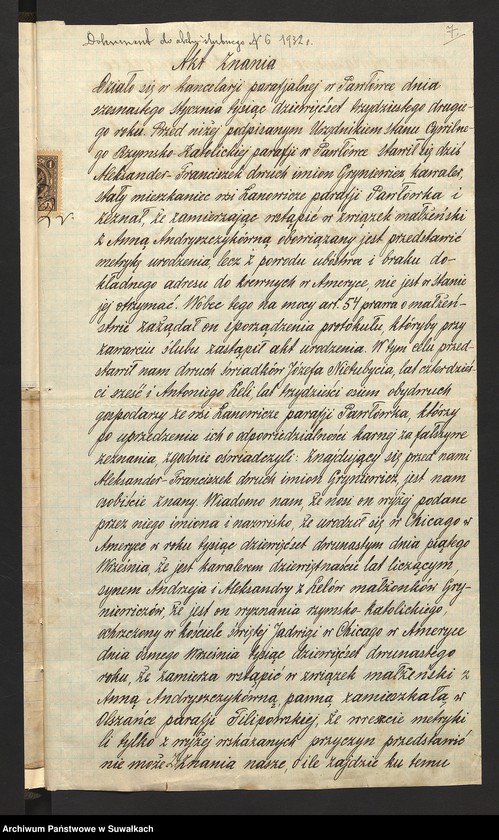 Dokument do aktu ślubnego № 6 1932 r.
7.
Akt Znania
Działo się w kancelarji parafjalnej w Pawłówce dnia
szesnastego Stycznia tysiąc dziewięćset trzydziestego drugie-
go roku. Przed niżej podpisanym Urzędnikiem Stanu Cywilne-
go Rzymsko-Katolickiej parafji w Pawłówce stawił się dziś
Aleksander-Franciszek dwuch imion Gryniewicz kawaler,
stały mieszkaniec wsi Łanowicze parafji Pawłówka i
zeznał, że zamierzając wstąpić w związek małżeński
z Anną Andryszczykówną obowiązany jest przedstawić
metrykę urodzenia, lecz z powodu ubóstwa i braku do-
kładnego adresu do krewnych w Ameryce, nie jest w stanie
jej otrzymać. Wobec tego na mocy art. 54 prawa o małżeń-
stwie zażądał on sporządzenia protokułu, któryby przy
zawarciu ślubu zastąpił akt urodzenia. W tym celu przed-
stawił nam dwuch świadków Józefa Nietubycia, lat czterdzieś-
ci sześć i Antoniego Leli lat trzydzieści osiem obydwuch
gospodarzy ze wsi Łanowicze parafji Pawłówka, którzy
po uprzedzeniu ich o odpowiedzialności karnej za fałszywe
zeznania, zgodnie oświadczyli: Znajdujący się przed nami
Aleksander-Franciszek dwuch imion Gryniewicz, jest nam
osobiście znany. Wiadomo nam, że nosi on wyżej podane
przez niego imiona i nazwisko, że urodził się w Chicago w
Ameryce w roku tysiąc dziewięćset dwunastym dnia piątego
Września, że jest kawalerem dziewiętnaście lat liczącym,
synem Andrzeja i Aleksandry z Lelów małżonków Gry-
niewiczów, że jest on wyznania rzymsko-katolickiego,
ochrzczony w kościele świętej Jadwigi w Chicago w Ameryce
dnia ósmego Września tysiąc dziewięćset dwunastego
roku, że zamierza wstąpić w związek małżeński z
Anną Andryszczykówną, panną zamieszkałą w
Olszance parafji Filipowskiej, że wreszcie metryki
li tylko z wyżej wskazanych przyczyn przedstawić
nie może. Zeznania nasze, o ile zajdzie ku temu
Archiwum Państwowe w Suwałkach